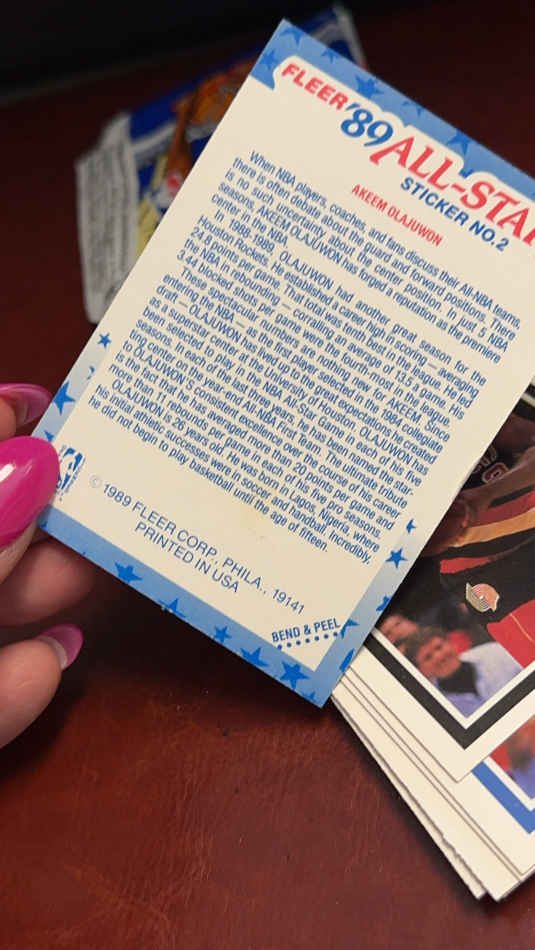 FLEER '89 ALL-STAR
STICKER NO. 2
AKEEM OLAJUWON
When NBA players, coaches, and fans discuss their All-NBA teams,
there is often debate about the guard and forward positions. There
is no such uncertainty about the center position. In just 5 NBA
seasons, AKEEM OLAJUWON has forged a reputation as the premiere
center in the NBA.
In 1988-1989, OLAJUWON had another great season for the
Houston Rockets. He established a career high in scoring — averaging
24.8 points per game. That total was tenth best in the league. He led
the NBA in rebounding — corralling an average of 13.5 a game. His
3.44 blocked shots per game were the fourth most in the league.
These spectacular numbers are nothing new for AKEEM. Since
entering the NBA — as the first player selected in the 1984 collegiate
draft — OLAJUWON has lived up to the great expectations he created
as a superstar center at the University of Houston. OLAJUWON has
been selected to play in the NBA All-Star Game in each of his five
seasons. In each of the last three years, he has been named the star-
ting center on the year-end All-NBA First Team. The ultimate tribute
to OLAJUWON'S consistent excellence over the course of his career
is the fact that he has averaged more than 20 points per game and
more than 11 rebounds per game in each of his five pro seasons.
OLAJUWON is 26 years old. He was born in Lagos, Nigeria, where
his initial athletic successes were in soccer and handball. Incredibly,
he did not begin to play basketball until the age of fifteen.
© 1989 FLEER CORP., PHILA., 19141
PRINTED IN USA
BEND & PEEL